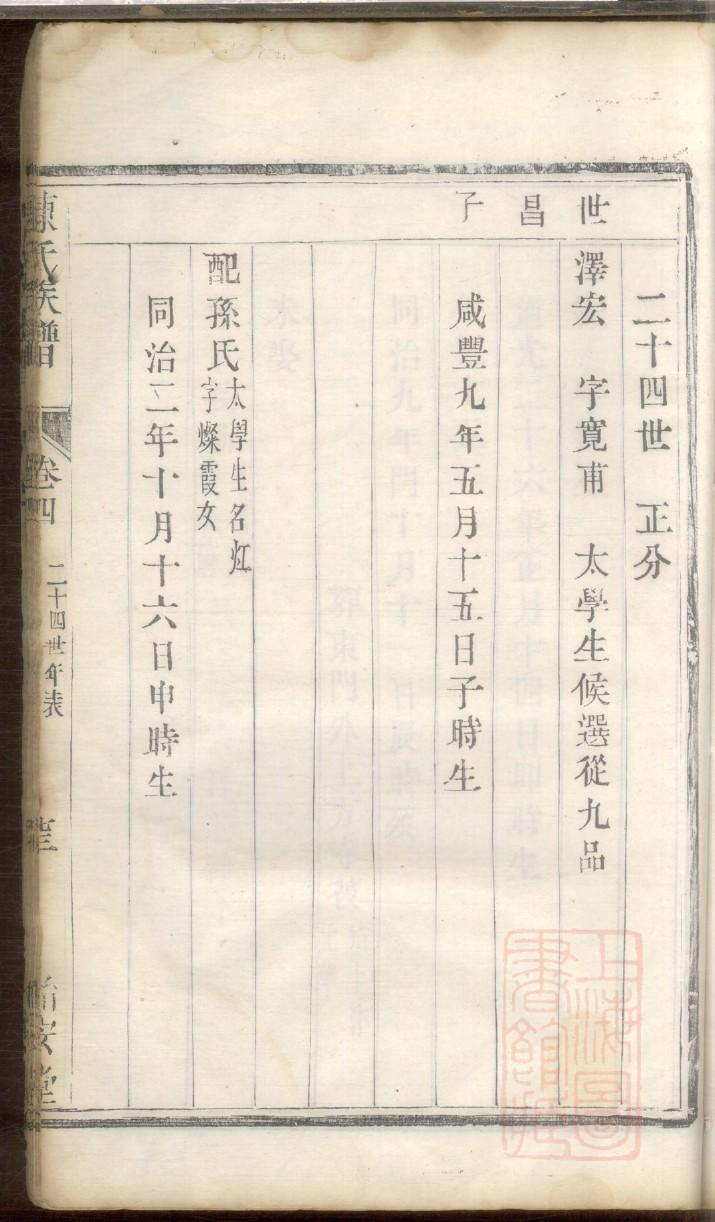 世昌子
二十四世　正分
澤宏　字寬甫　太學生候選從九品
咸豐九年五月十五日子時生
配孫氏
太學生名灴
字燦霞女
同治二年十月十六日申時生
陳氏族譜
卷四
二十四世年表
堂
上海圖書館藏